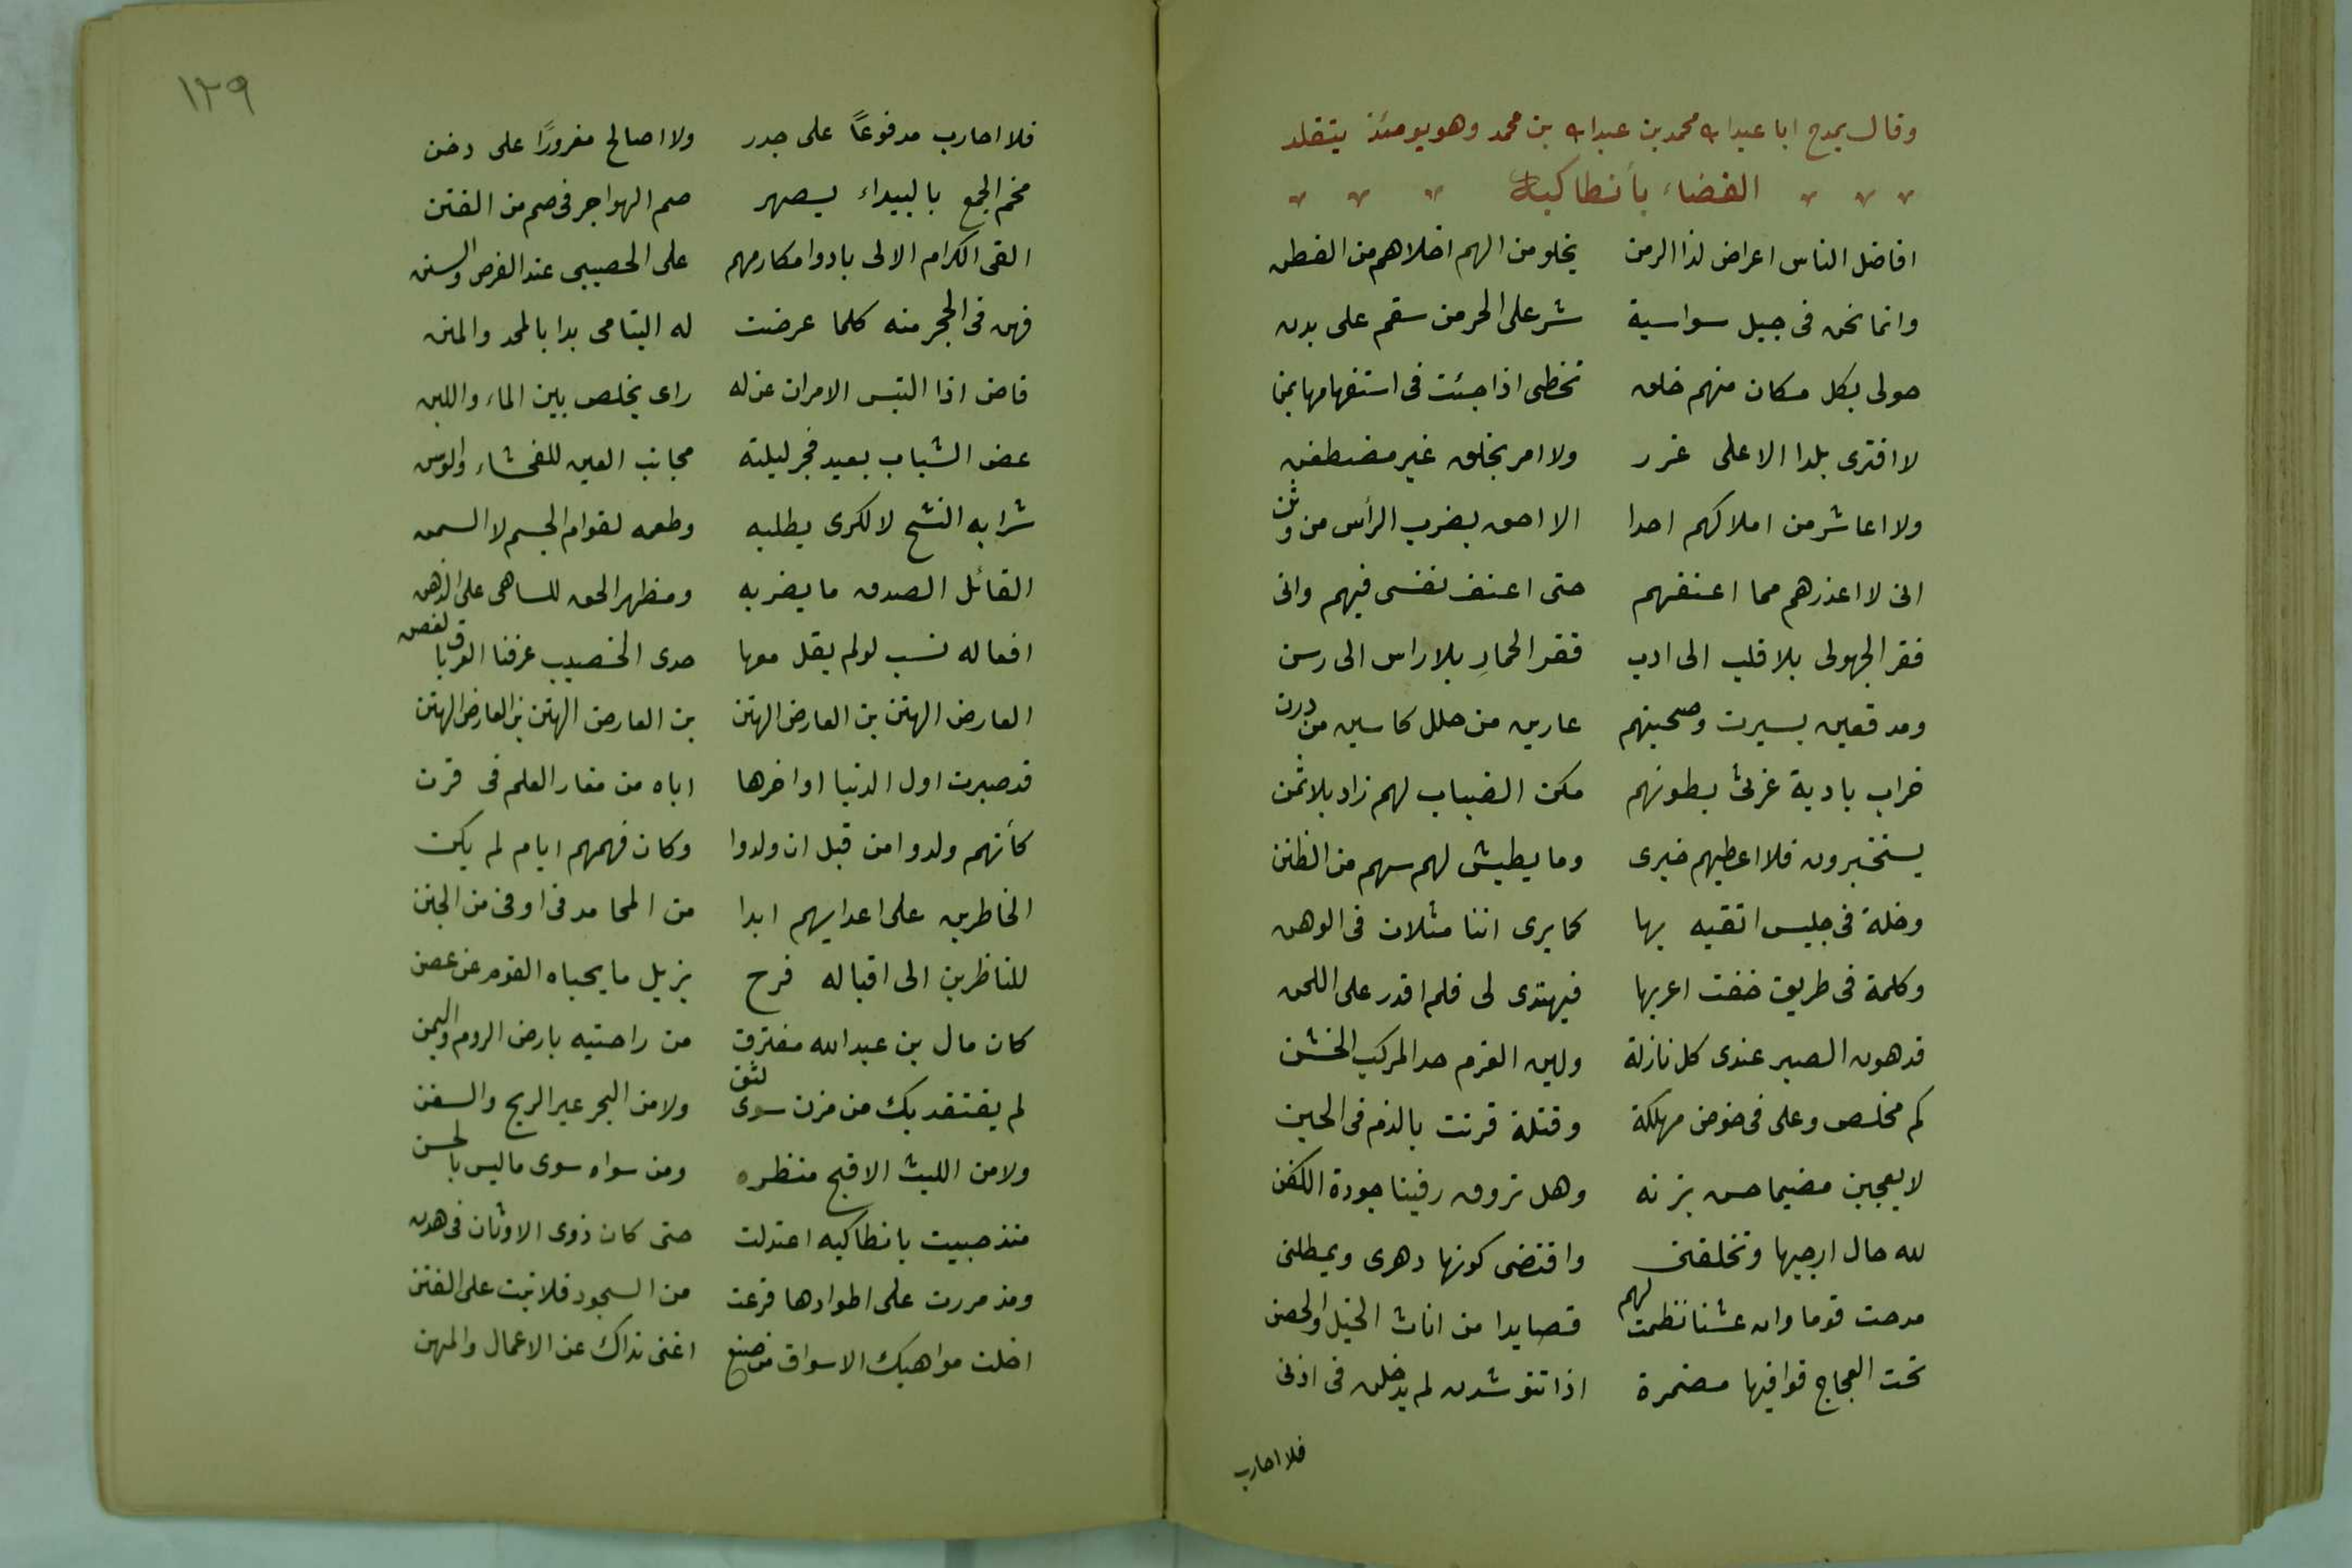 وقال يمدح ابا عبدالله محمد بن عبدالله بن محمد وهو يومئذ يتقلد
القضاء بأنطاكية
افاضل الناس اعراض لذا الزمن يخلو من الهم اخلاهم من الفطن
وانما نحن فى جيل سواسية شر على الحر من سقم على بدن
حولى بكل مكان منهم خلق تخطى اذا جئت فى استفهامها بمنا
لا افترى بلدا الا على غرر ولا امر بخلق غير مضطغن
ولا اعاشر من املاكهم احدا الا احق بضرب الرأس من وثن
انى لا اعذرهم مما اعنفهم حتى اعنف نفسى فيهم وانى
فقر الجهولى بلا قلب الى ادب فقر الحمارِ بلا راس الى رسن
ومدقعين بسبرت وصحبتهم عارين من حلل كاسين من درن
خراب بادية غرثى بطونهم مكن الضباب لهم زاد بلا ثمن
يستخبرون فلا اعطيهم خبرى وما يطيش لهم سهم من الظنن
وخلة فى جليس اتقيه بها كما يرى اننا مثلان فى الوهن
وكلمة فى طريق خفت اعربها فيهتدى لى فلم اقدر على اللحن
قد هون الصبر عندى كل نازلة ولين العزم حد المركب الخشن
كم مخلص وعلى فى خوض مهلكة وقتلة قرنت بالذم فى الجبن
لا يعجبن مضيما حسن بزته وهل تروق دفينا جودة الكفن
لله حال ارجيها وتخلفنى واقتضى كونها دهرى ويمطلنى
مدحت قوما وان عشنا نظمت لهم قصايدا من اناث الخيل والحصن
تحت العجاج قوافيها مضمرة اذا تنوشدن لم يدخلن فى اذنى
فلا احارب
١٢٩
فلا احارب مدفوعاً على جدر ولا اصالح مغرورًا على دخن
مخيم الجمع بالبيداء يصهر صم الهواجر فى صم من الفتن
القى الكرام الالى بادوا مكارمهم على الخصيبى عند الفرض والسنن
فهن فى الحجر منه كلما عرضت له اليتامى بدا بالمجد والمنن
قاض اذا التبس الامران عن له راى يخلص بين الماء واللبن
غض الشباب بعيد فجر ليلته مجانب العين للفحشاء والوسن
شرابه النشح لا لكرى يطلبه وطعمه لقوام الجسم لا السمن
القائل الصدق ما يضر به ومظهر الحق للساهى على الذهن
افعاله نسب لو لم يقل معها جدى الخصيب عرفنا العرق بالغصن
العارض الهتن بن العارض الهتن بن العارض الهتن بن العارض الهتن
قد صبرت اول الدنيا اواخرها اباه من مغار العلم فى قرن
كأنهم ولدوا من قبل ان ولدوا وكان فهمهم ايام لم يكن
الخاطرين على اعدايهم ابدا من المحامد فى اوفى من الجنن
للناظرين الى اقباله فرح يزيل ما بجباه القوم من غضن
كان مال بن عبد الله مغترف من راحتيه بارض الروم واليمن
لم يفتقد بك من مزن سوى لثق ولا من البحر غير الريح والسفن
ولا من الليث الا قبح منظره ومن سواه سوى ما ليس بالحسن
منذ جيت بانطاكيه اعتدلت حتى كان ذوى الاوثان فى هدن
ومذ مررت على اطوادها قرعت من السجود فلا نبت على القنن
اخلت مواهبك الاسواق من صنع اغنى نداك عن الاعمال والمهن